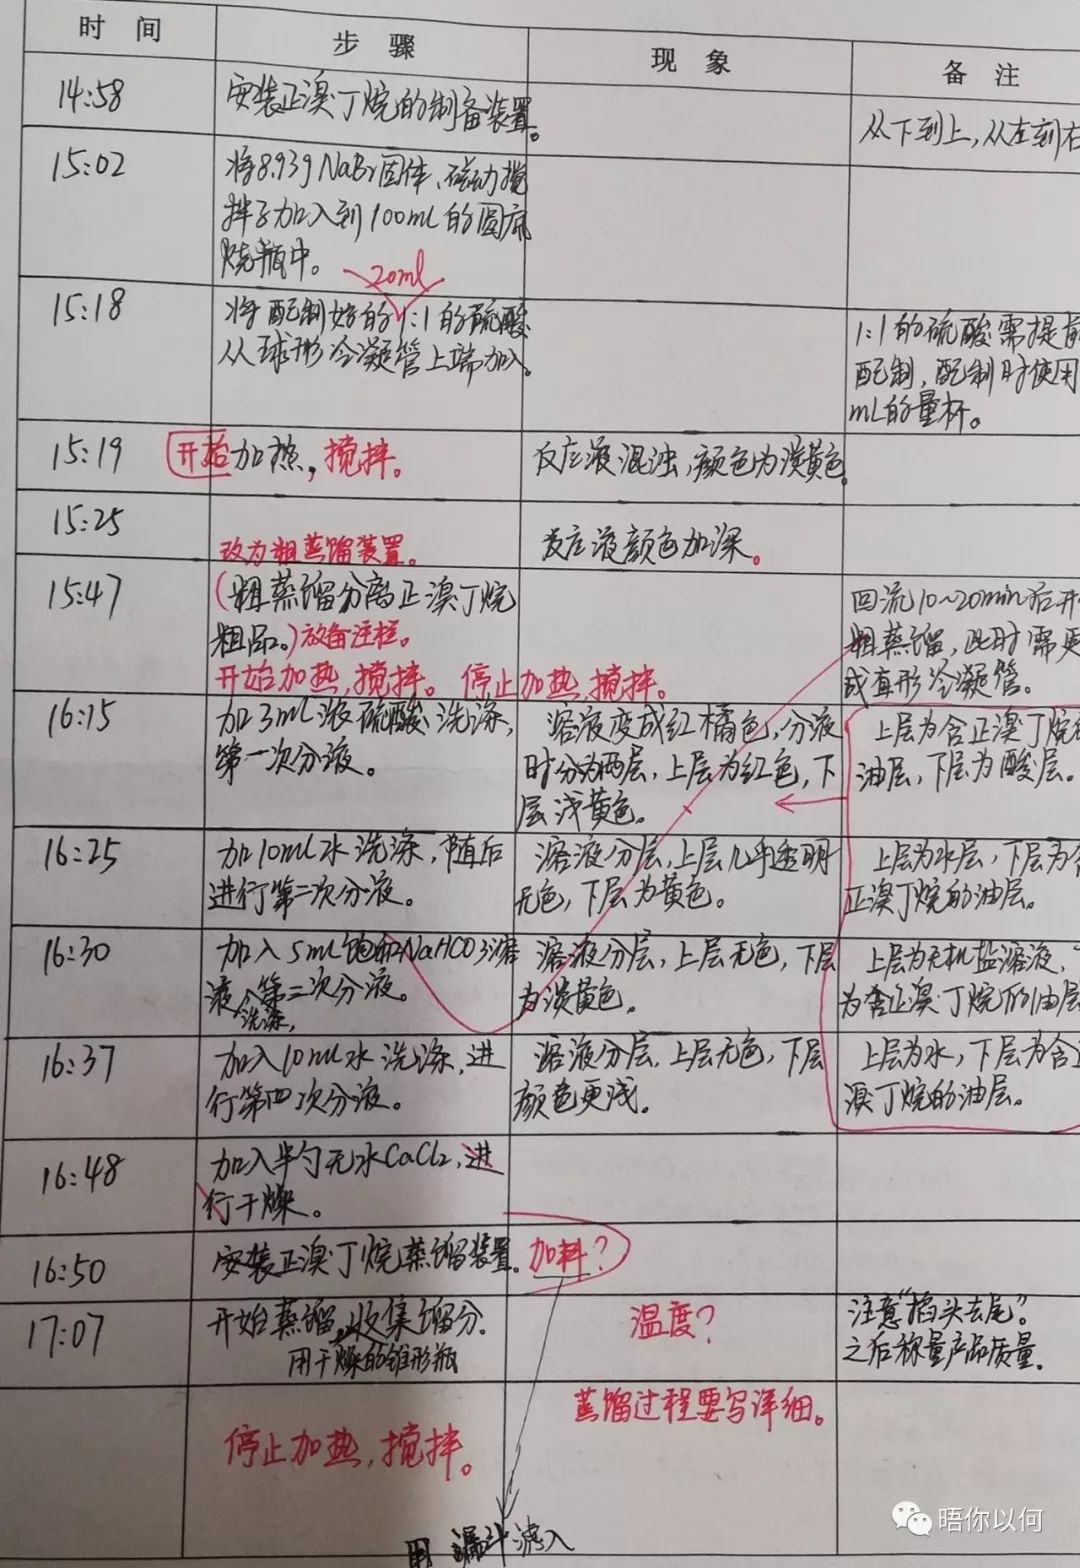 时 间
步 骤
现 象
备 注
14:58
安装正溴丁烷的制备装置。
从下到上,从左到右
15:02
将8.93g NaBr固体、磁动搅
拌子加入到100mL的圆底
烧瓶中。
20ml
15:18
将配制好的1:1的硫酸
从球形冷凝管上端加入。
1:1的硫酸需提前
配制,配制时使用
mL的量杯。
15:19
开始加热,搅拌。
反应液混浊,颜色为淡黄色。
15:25
反应液颜色加深。
改为粗蒸馏装置。
15:47
(粗蒸馏分离正溴丁烷
粗品。)放备注栏。
开始加热,搅拌。 停止加热,搅拌。
回流10~20min后开
粗蒸馏,此时需更
成直形冷凝管。
16:15
加3mL浓硫酸洗涤,
第一次分液。
溶液变成红橘色,分液
时分为两层,上层为红色,下
层浅黄色。
上层为含正溴丁烷的
油层,下层为酸层。
16:25
加10ml水洗涤,随后
进行第二次分液。
溶液分层,上层几乎透明
无色,下层为黄色。
上层为水层,下层为含
正溴丁烷的油层。
16:30
加入5ml饱和NaHCO3溶
液,第三次分液。
洗涤,
溶液分层,上层无色,下层
为淡黄色。
上层为无机盐溶液、下
为含正溴丁烷的油层
16:37
加入10ml水洗涤,进
行第四次分液。
溶液分层,上层无色,下层
颜色更浅。
上层为水,下层为含正
溴丁烷的油层。
16:48
加入半勺无水CaCl2,进
行干燥。
16:50
安装正溴丁烷蒸馏装置。
加料?
17:07
开始蒸馏,收集馏分.
用干燥的锥形瓶
温度?
注意“掐头去尾”。
之后称量产品质量.
蒸馏过程要写详细。
停止加热,搅拌。
用漏斗滤入
晤你以何